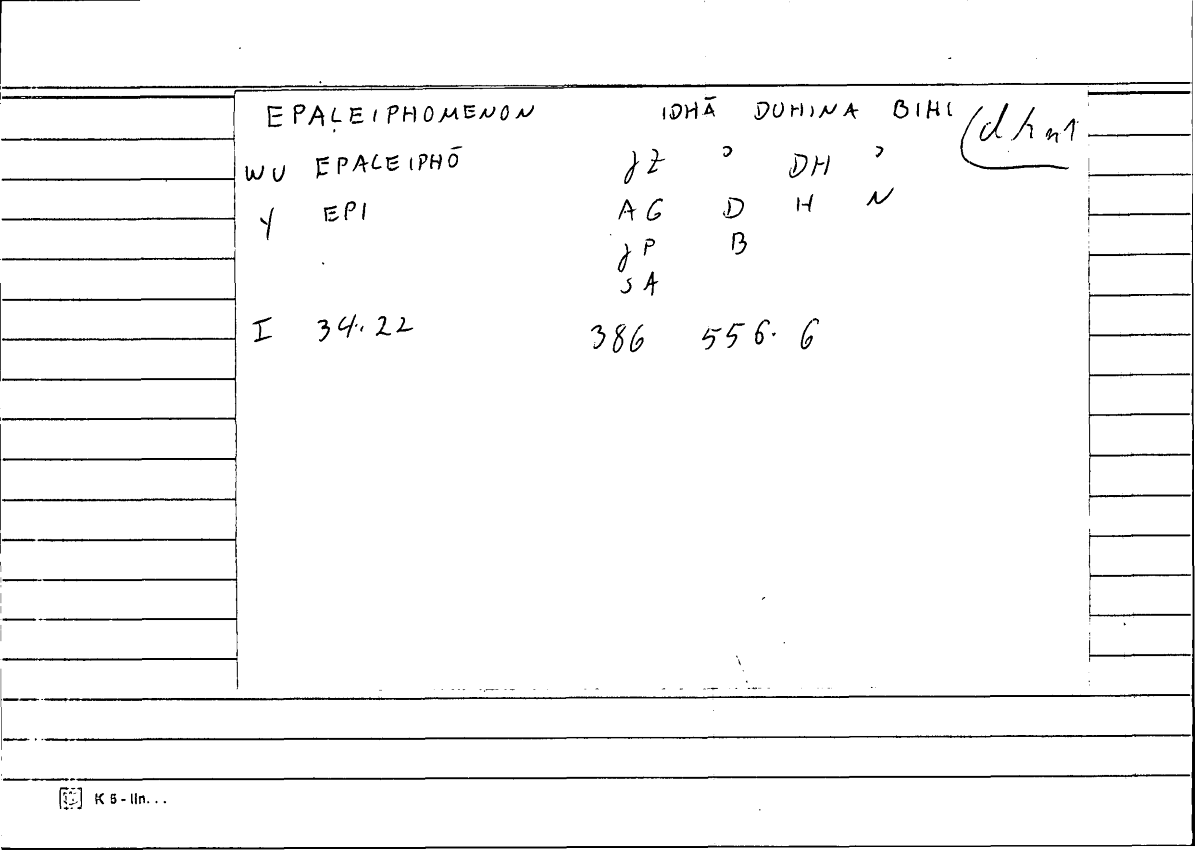 EPALEIPHOMENON IDHĀ DUHINA BIHI (dhn1
WU EPALEIPHŌ JZ ʾ DH ʾ
Y EPI AG D H N
JP B
SA
I 34.. 22 386 556. 6
K 5 - lin...